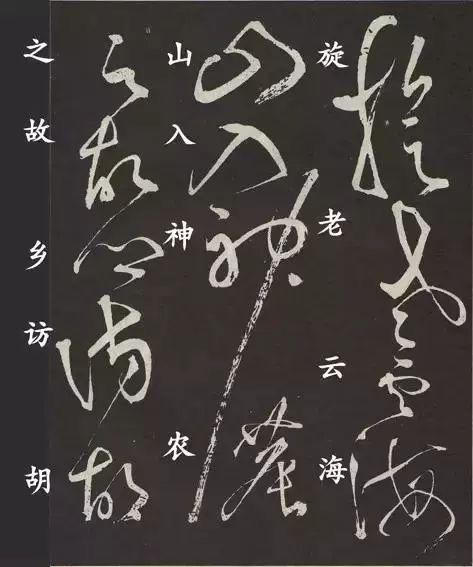 旋老云海
山入神农
之故乡访胡